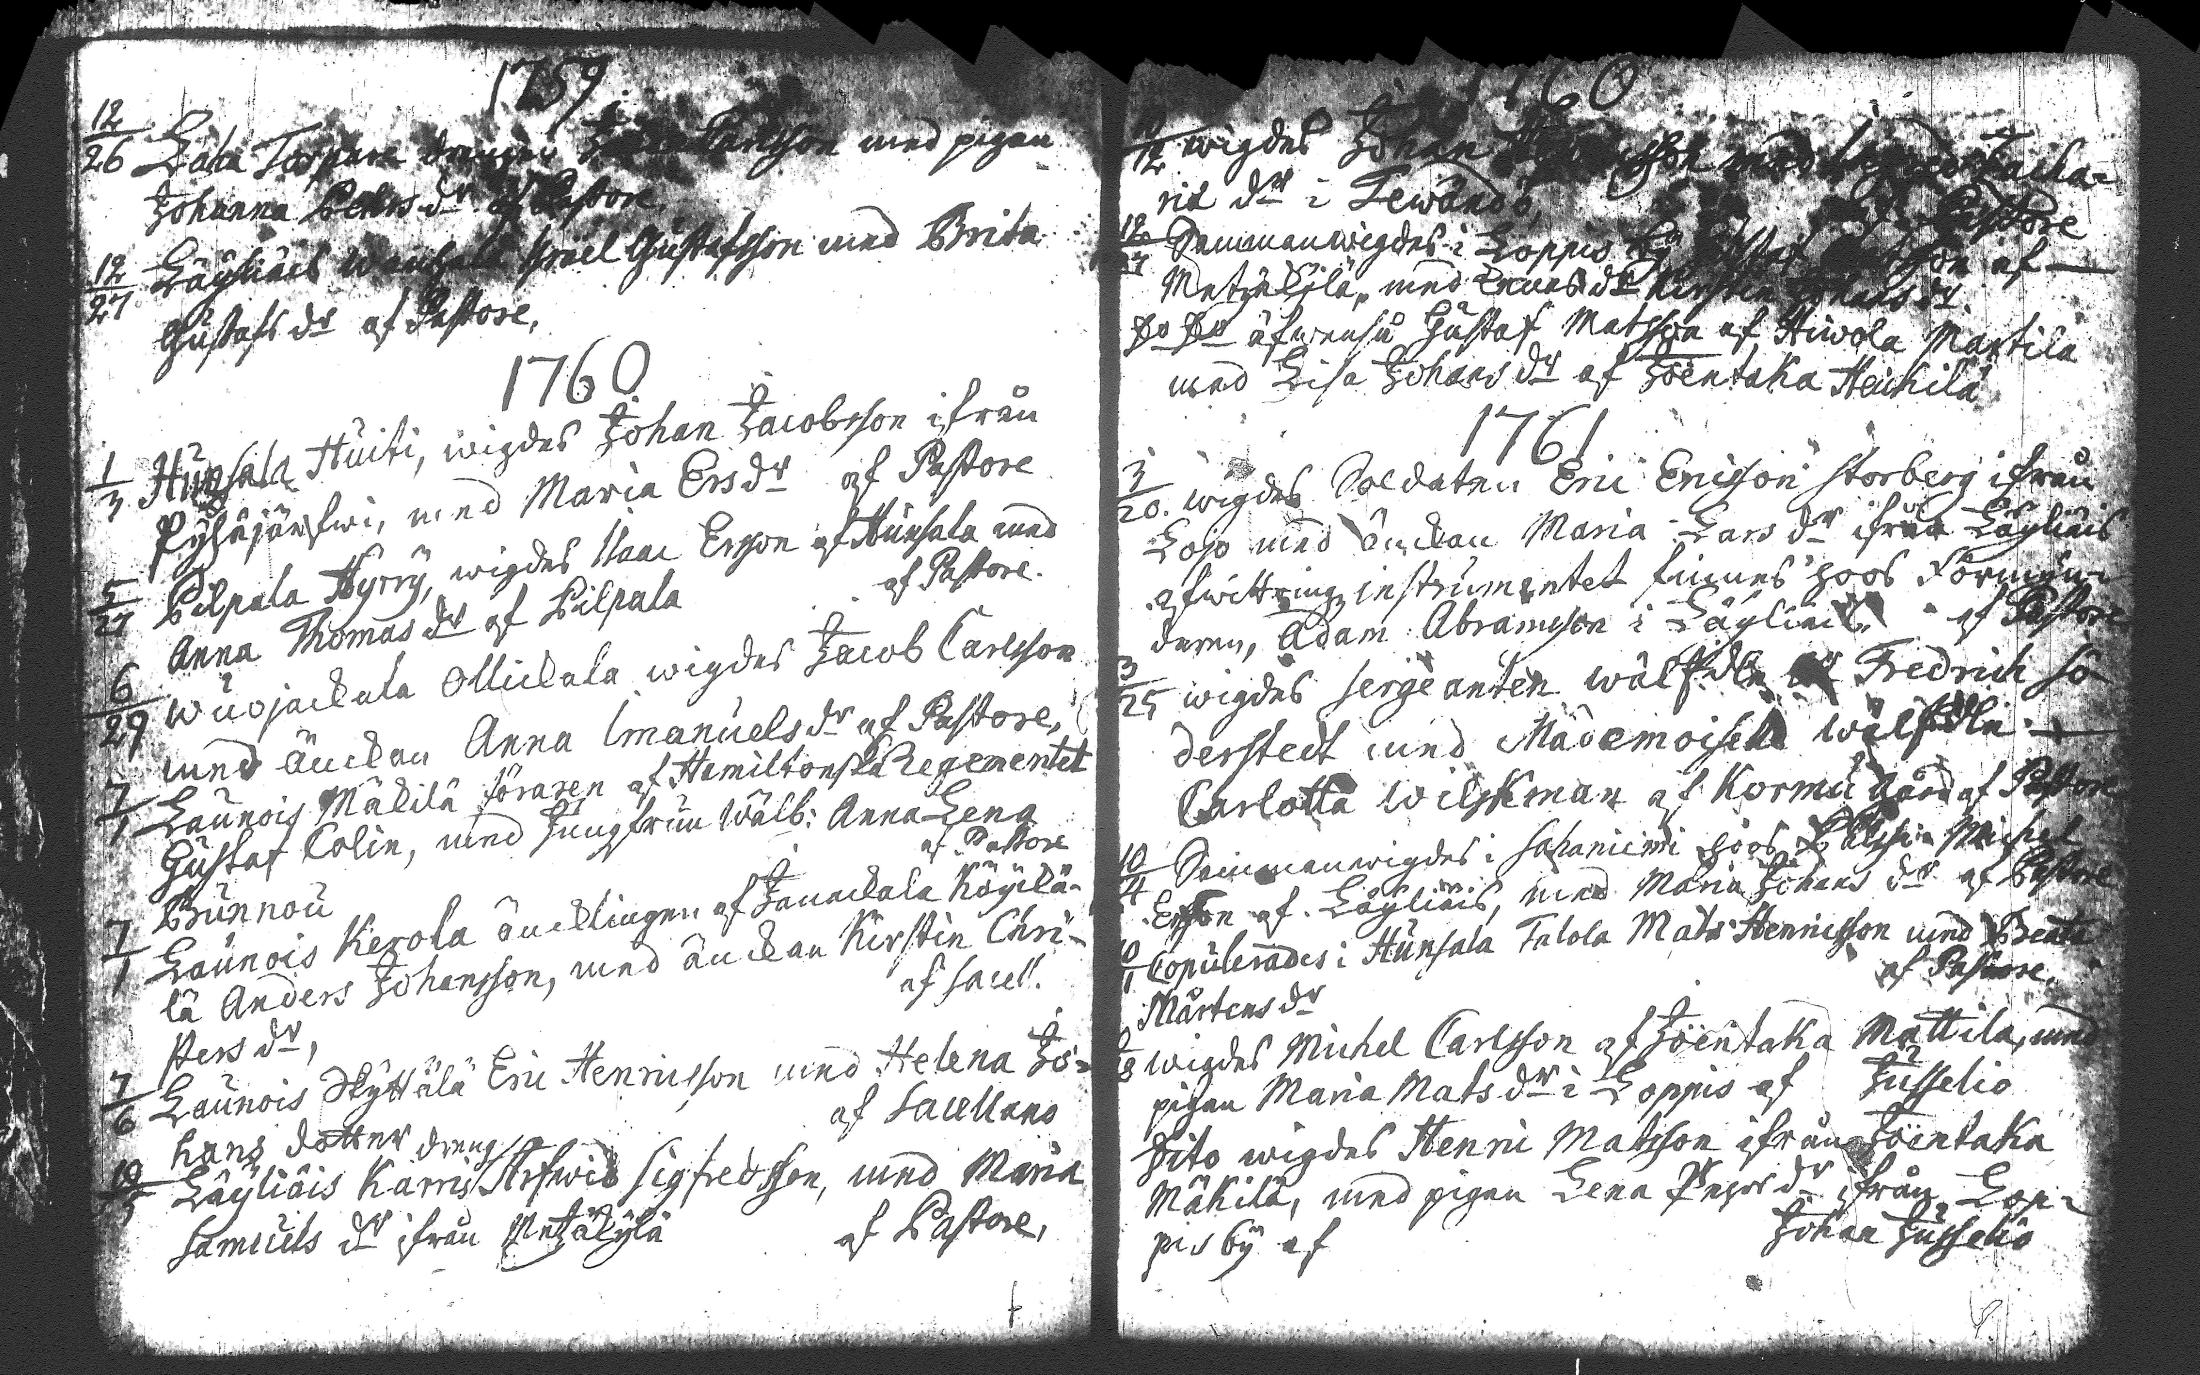 1759
12/26 Lala Torpare drengen Carlsson med pigan
Johanna Pehrs dr af Pastore.
12/27 Läyliäis Israel Gustafsson med Brita
Gustafs dr af Pastore.
1760
1/3 Hunsala Huiti, wigdes Johan Jacobsson ifrån
Pyhäjärfwi, med Maria Ers dr af Pastore
5/27 Pilpala Hyrry, wigdes Isaac Ersson af Hunsala med
Anna Thomas dr af Pilpala af Pastore.
6/29 Wuojackala Ollickala wigdes Jacob Carlsson
med änckan Anna Imanuels dr af Pastore,
7/1 Launois Mäkilä föraren af Hamiltonska Regementet
Gustaf Colin, med Jungfruu Wälb: Anna Lena
Brunnou af Pastore
7/1 Launois Kerola äncklingen af JanackalaKöyckä-
lä Anders Johansson, med änckan Kirstin Chri-
sters dr, af Sacell.
7/6 Launois Skyttälä Eric Henricsson med Helena Jo-
hans dotter af Sacellano
10/5 Läyliäis Karris dreng Arfwid Sigfredsson, med Maria
Samuels dr ifrån Metzäkylä af Pastore,
1760
wigdes Johan med Zacha-
ris dr i Tewändö, Pastore
12/27 Sammanwigdes i Loppis by af
Metzäkylä, med Kirstin Johans dr
Do Do äfwenså Gustaf Matsson af Hiwola Martila
med Lisa Johans dr af Joentaka Heickilä
1761
1/20. wigdes Soldaten Eric Ericsson Storberg ifrån
Lojo med änckan Maria Lars dr ifrån Läyliäis
afwittrings instrumentet finnes hoos Förmyn-
daren, Adam Abramsson i Läyliäis af Pastore
3/25 wigdes sergeanten wälf Fredrich Sö-
derstedt med Mademoisell wälf
Carlotta Wilskman af Kormu gård af Pastore
10/4 Sammanwigdes i Sahaniemi hoos Michel
Ersson af Läyliäis, med Maria Johans dr af Pastore
Copulerades i Hunsala Talola Mats Henricsson med Beata
Mårtens dr af Pastore,
wigdes Michel Carlsson af Joentaka Mattila, med
pigan Maria Mats dr i Loppis af Jusselio
Dito wigdes Henric Matsson ifrån Joentaka
Mäkilä, med pigan Lena dr ifrån Lop-
pis by af Johan Jusselio